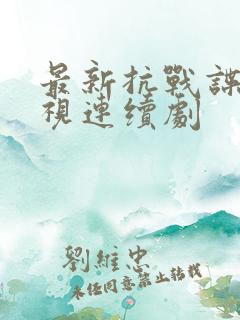 最新抗戰諜
視連續劇
劉維忠
未经同意禁止转载